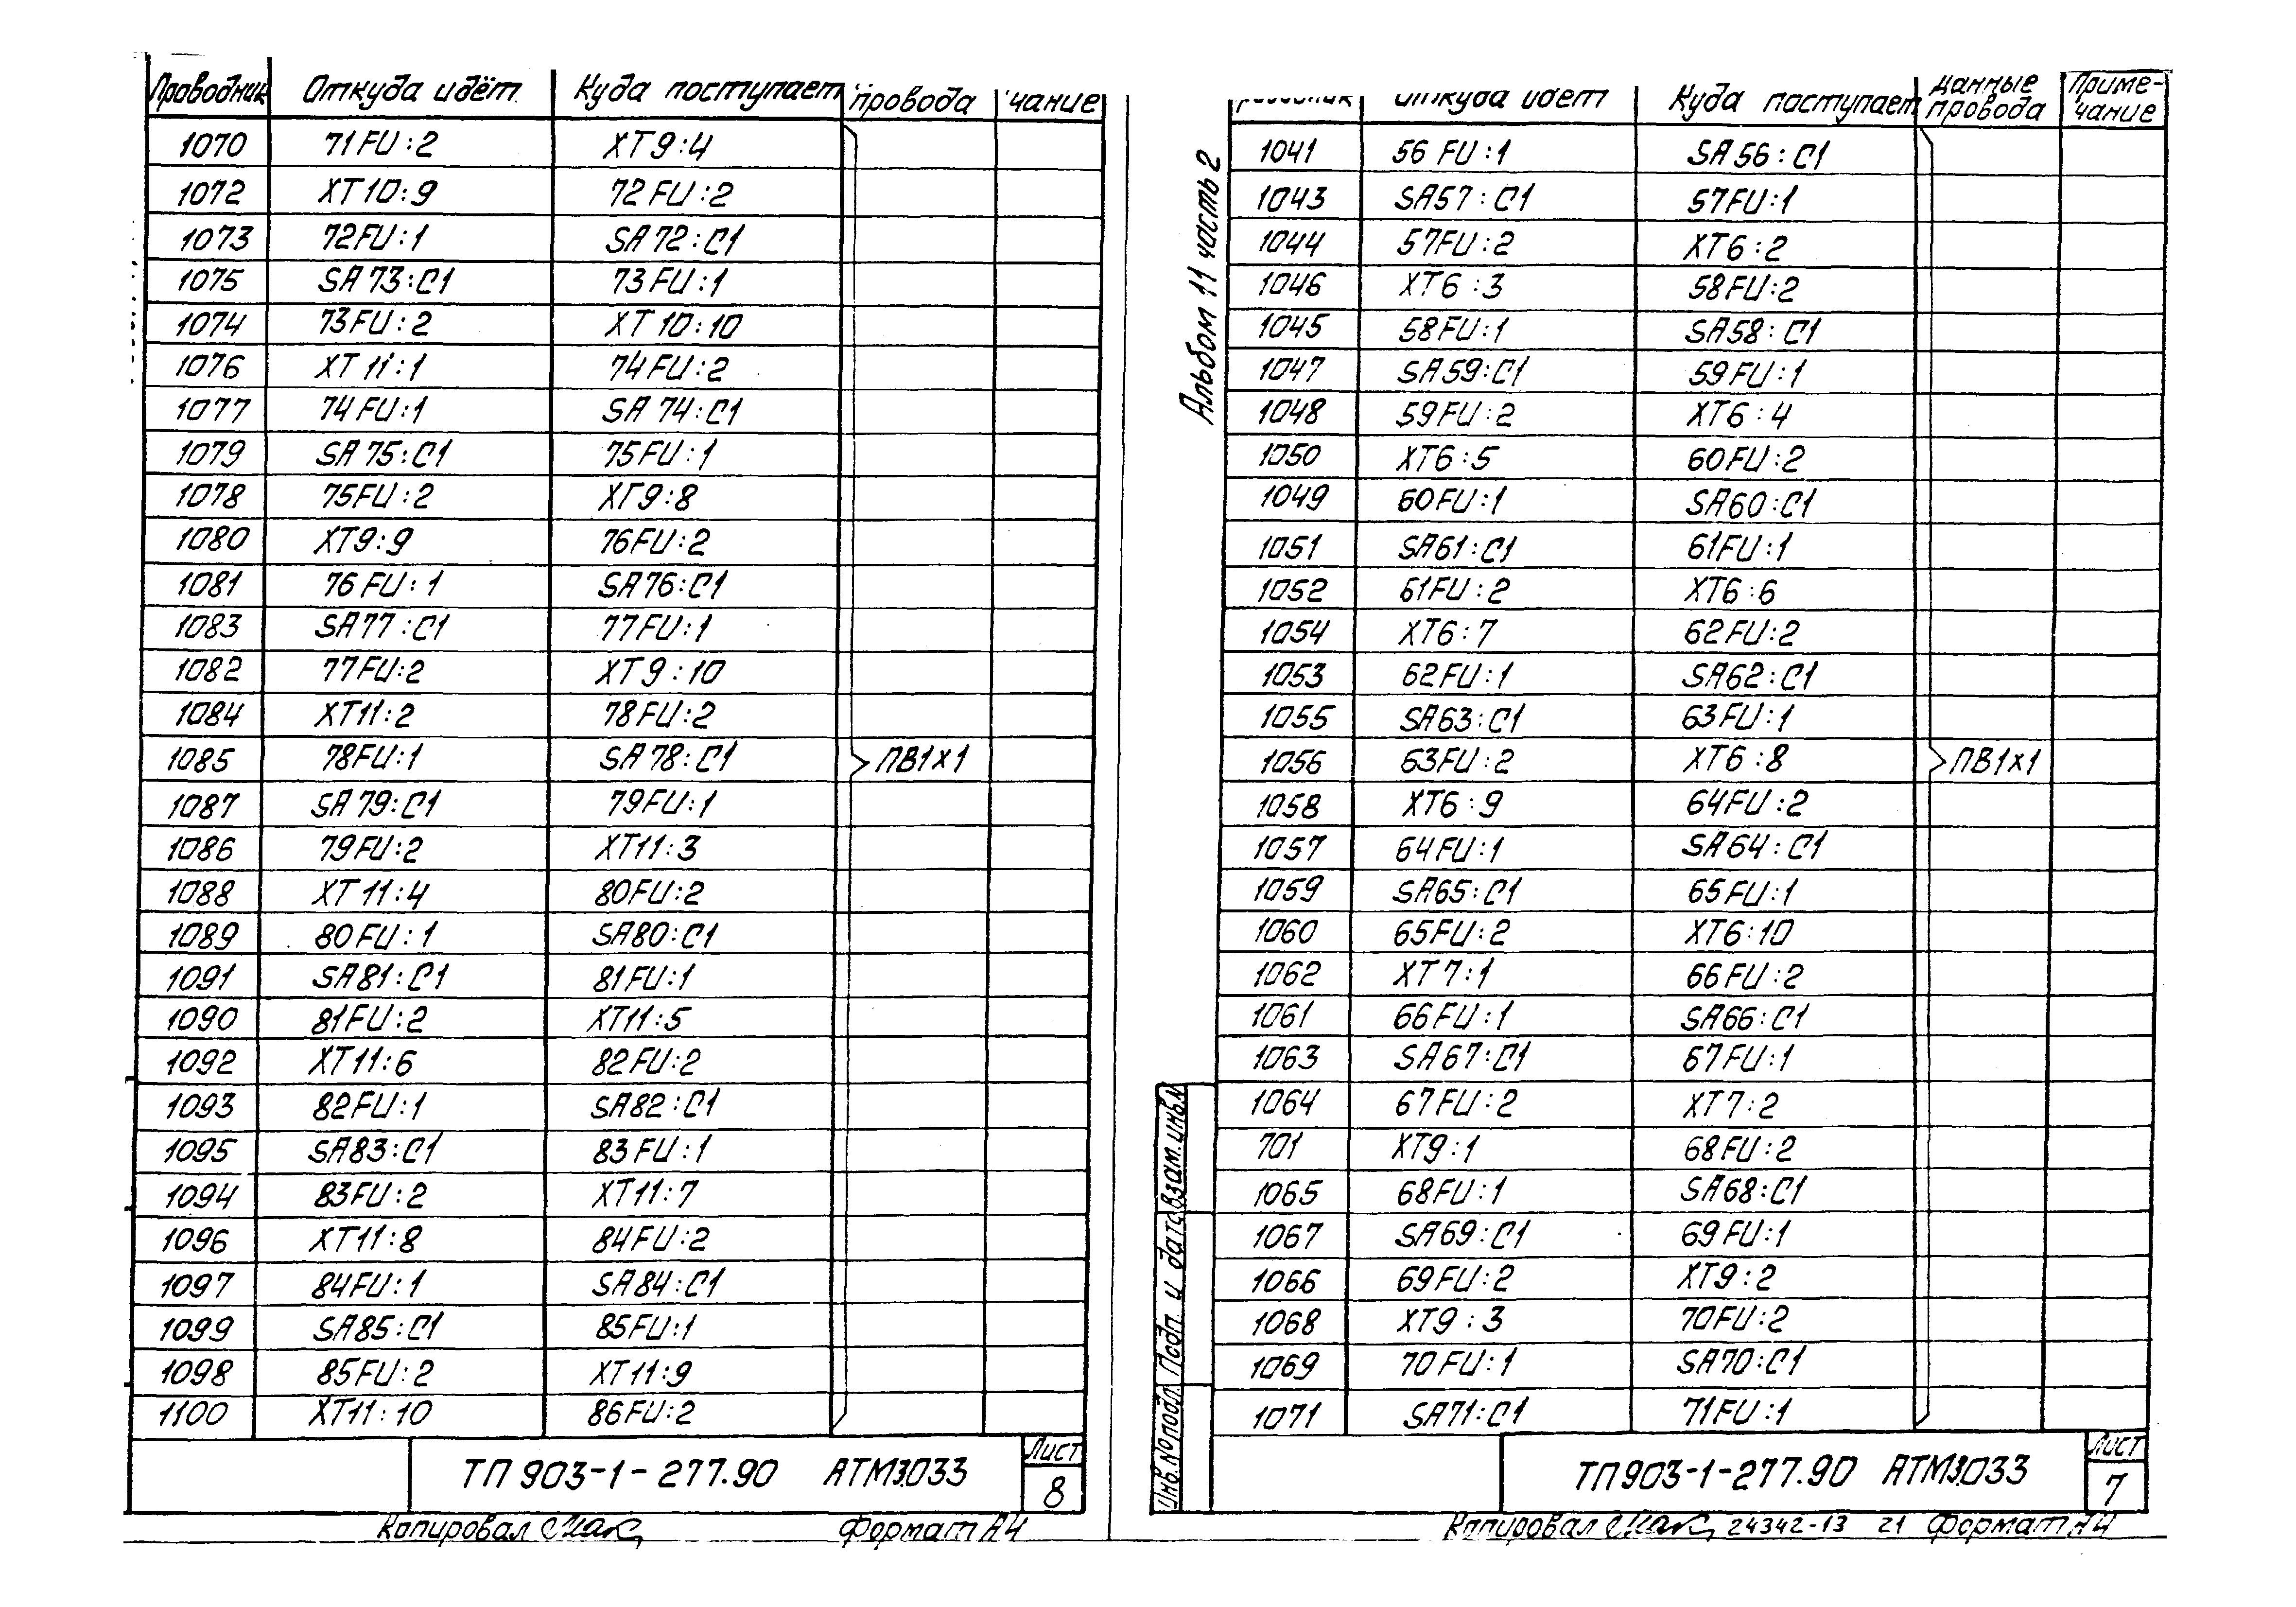 Проводник Откуда идёт Куда поступает провода чание
1070 71FU:2 XT9:4
1072 XT10:9 72FU:2
1073 72FU:1 SA72:C1
1075 SA73:C1 73FU:1
1074 73FU:2 XT10:10
1076 XT11:1 74FU:2
1077 74FU:1 SA74:C1
1079 SA75:C1 75FU:1
1078 75FU:2 XT9:8
1080 XT9:9 76FU:2
1081 76FU:1 SA76:C1
1083 SA77:C1 77FU:1
1082 77FU:2 XT9:10
1084 XT11:2 78FU:2
1085 78FU:1 SA78:C1 ПВ1х1
1087 SA79:C1 79FU:1
1086 79FU:2 XT11:3
1088 XT11:4 80FU:2
1089 80FU:1 SA80:C1
1091 SA81:C1 81FU:1
1090 81FU:2 XT11:5
1092 XT11:6 82FU:2
1093 82FU:1 SA82:C1
1095 SA83:C1 83FU:1
1094 83FU:2 XT11:7
1096 XT11:8 84FU:2
1097 84FU:1 SA84:C1
1099 SA85:C1 85FU:1
1098 85FU:2 XT11:9
1100 XT11:10 86FU:2
ТП 903-1-277.90 АТМ3.033
Лист
8
Копировал Формат А4
Альбом 11 часть 2
Откуда идёт Куда поступает Данные провода Приме-чание
1041 56FU:1 SA56:C1
1043 SA57:C1 57FU:1
1044 57FU:2 XT6:2
1046 XT6:3 58FU:2
1045 58FU:1 SA58:C1
1047 SA59:C1 59FU:1
1048 59FU:2 XT6:4
1050 XT6:5 60FU:2
1049 60FU:1 SA60:C1
1051 SA61:C1 61FU:1
1052 61FU:2 XT6:6
1054 XT6:7 62FU:2
1053 62FU:1 SA62:C1
1055 SA63:C1 63FU:1
1056 63FU:2 XT6:8 ПВ1х1
1058 XT6:9 64FU:2
1057 64FU:1 SA64:C1
1059 SA65:C1 65FU:1
1060 65FU:2 XT6:10
1062 XT7:1 66FU:2
1061 66FU:1 SA66:C1
1063 SA67:C1 67FU:1
1064 67FU:2 XT7:2
701 XT9:1 68FU:2
1065 68FU:1 SA68:C1
1067 SA69:C1 69FU:1
1066 69FU:2 XT9:2
1068 XT9:3 70FU:2
1069 70FU:1 SA70:C1
1071 SA71:C1 71FU:1
Инв.№подл. Подп. и дата Взам.инв.№
ТП 903-1-277.90 АТМ3.033
Лист
7
Копировал 24342-13 21 Формат А4